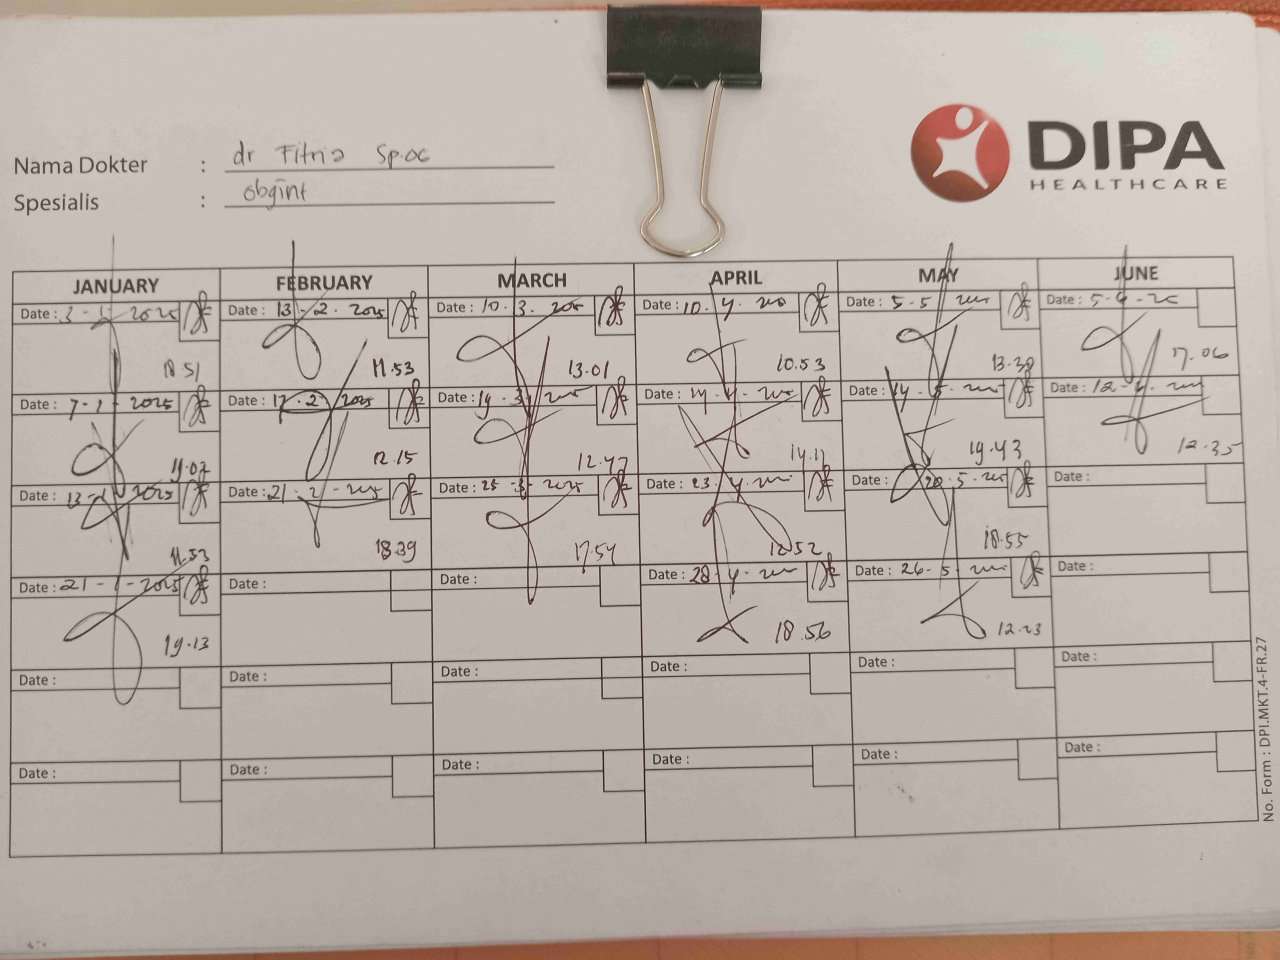 DIPA
HEALTHCARE
Nama Dokter : dr Fitria Sp.OG
Spesialis : obgint
JANUARY FEBRUARY MARCH APRIL MAY JUNE
Date : 3-1-2025 Date : 13-2-2025 Date : 10.3. Date : 10. Date : 5-5 Date : 5-
18.51 11.53 13.01 10.53 13.39 17.06
Date : 7-1-2025 Date : 17-2-2025 Date : 19.3. Date : Date : 14.5. Date : 12-
12.15 12.47 14.11 19.43 12.35
Date : 13- 2025 Date : 21-2- Date : 25-3-2025 Date : 23. Date : 20.5. Date :
11.53 18.39 17.54 12.52 18.55
Date : 21-1-2025 Date : Date : Date : 28- Date : 26-5- Date :
19.13 18.56 12.23
Date : Date : Date : Date : Date : Date :
Date : Date : Date : Date : Date : Date :
No. Form : DPI.MKT.4-FR.27